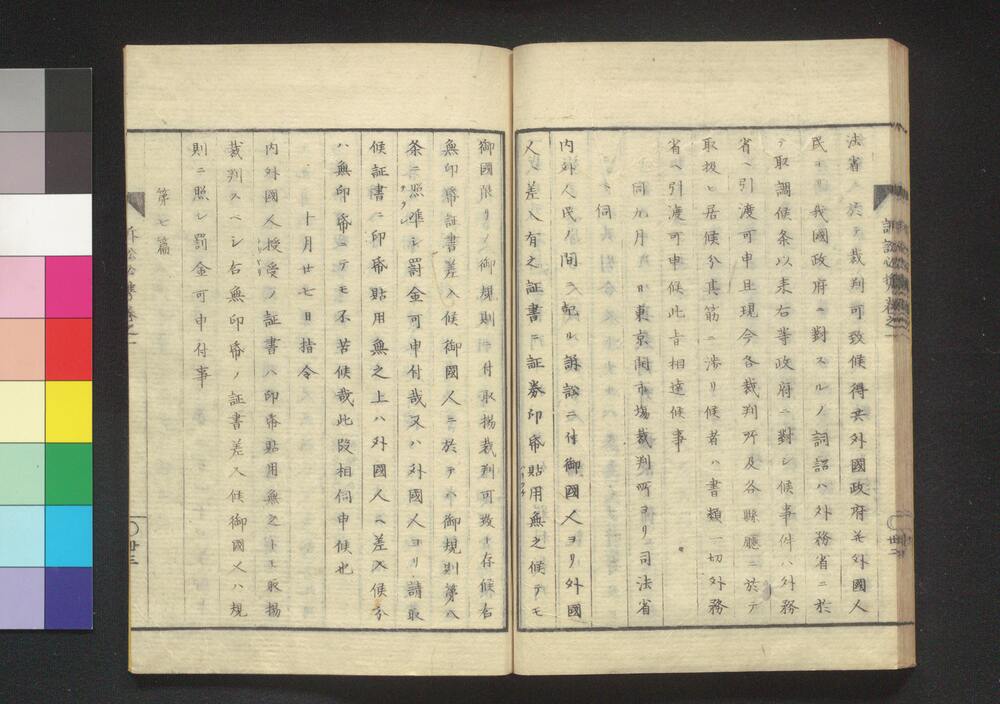 訴訟必携卷之一
法省ニ於テ裁判可致候得共外國政府并外國人
民ヨリ我國政府ニ對スルノ詞訟ハ外務省ニ於
テ取調候条以来右等政府ニ對シ候事件ハ外務
省ヘ引渡可申且現今各裁判所及各縣廳ニ於テ
取扱ヒ居候分其筋ニ渉リ候者ハ書類一切外務
省ヘ引渡可申候此旨相達候事
同九月 日東京開市場裁判所ヨリ司法省
ヘ伺
内外人民ノ間ニ起ル訴訟ニ付御國人ヨリ外國
人ヘ差入有之証書ニ証券印帋貼用無之候テモ
御國限リノ御規則ニ付取揚裁判可致ト存候右
無印帋証書差入候御國人ニ於テハ御規則第八
条ニ照準シ罰金可申付哉又ハ外國人ヨリ請取
候証書ニ印帋貼用無之上ハ外國人ヘ差入候分
ハ無印帋ニテモ不苦候哉此段相伺申候也
十月廿七日指令
内外國人授受ノ証書ハ印帋貼用無之トモ取揚
裁判スヘシ右無印帋ノ証書差入候御國人ハ規
則ニ照シ罰金可申付事
第七篇
訴訟必携卷之一